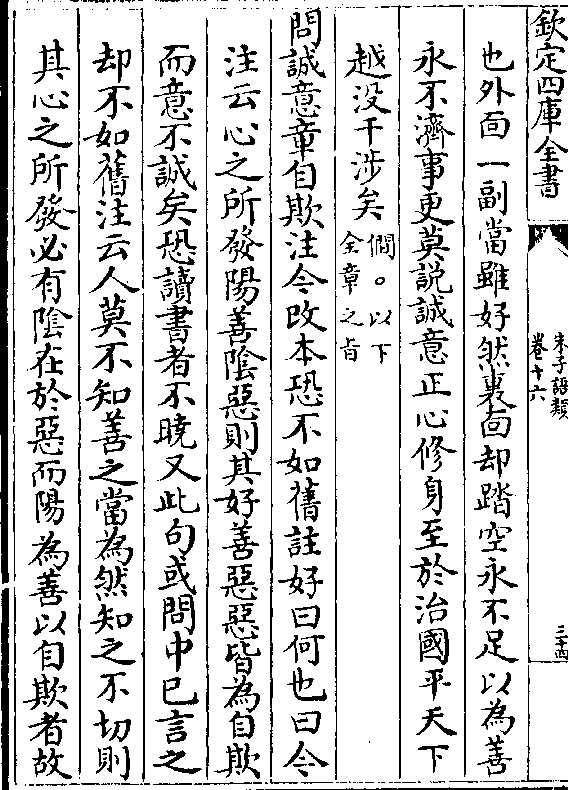 欽定四庫全書
朱子語類
卷十六
三十四
也外面一副當雖好然裏面却踏空永不足以為善
永不濟事更莫説誠意正心修身至於治國平天下
越没干涉矣 僩○以下全章之旨
問誠意章自欺注今改本恐不如舊註好曰何也曰今
注云心之所發陽善隂惡則其好善惡惡皆為自欺
而意不誠矣恐讀書者不曉又此句或問中已言之
却不如舊注云人莫不知善之當為然知之不切則
其心之所發必有隂在於惡而陽為善以自欺者故